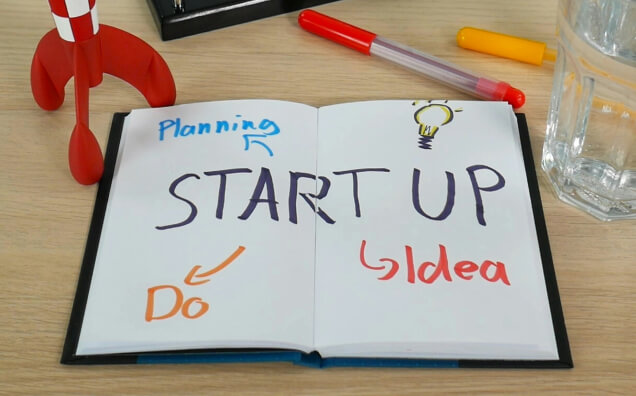 Planning
START UP
Do
Idea